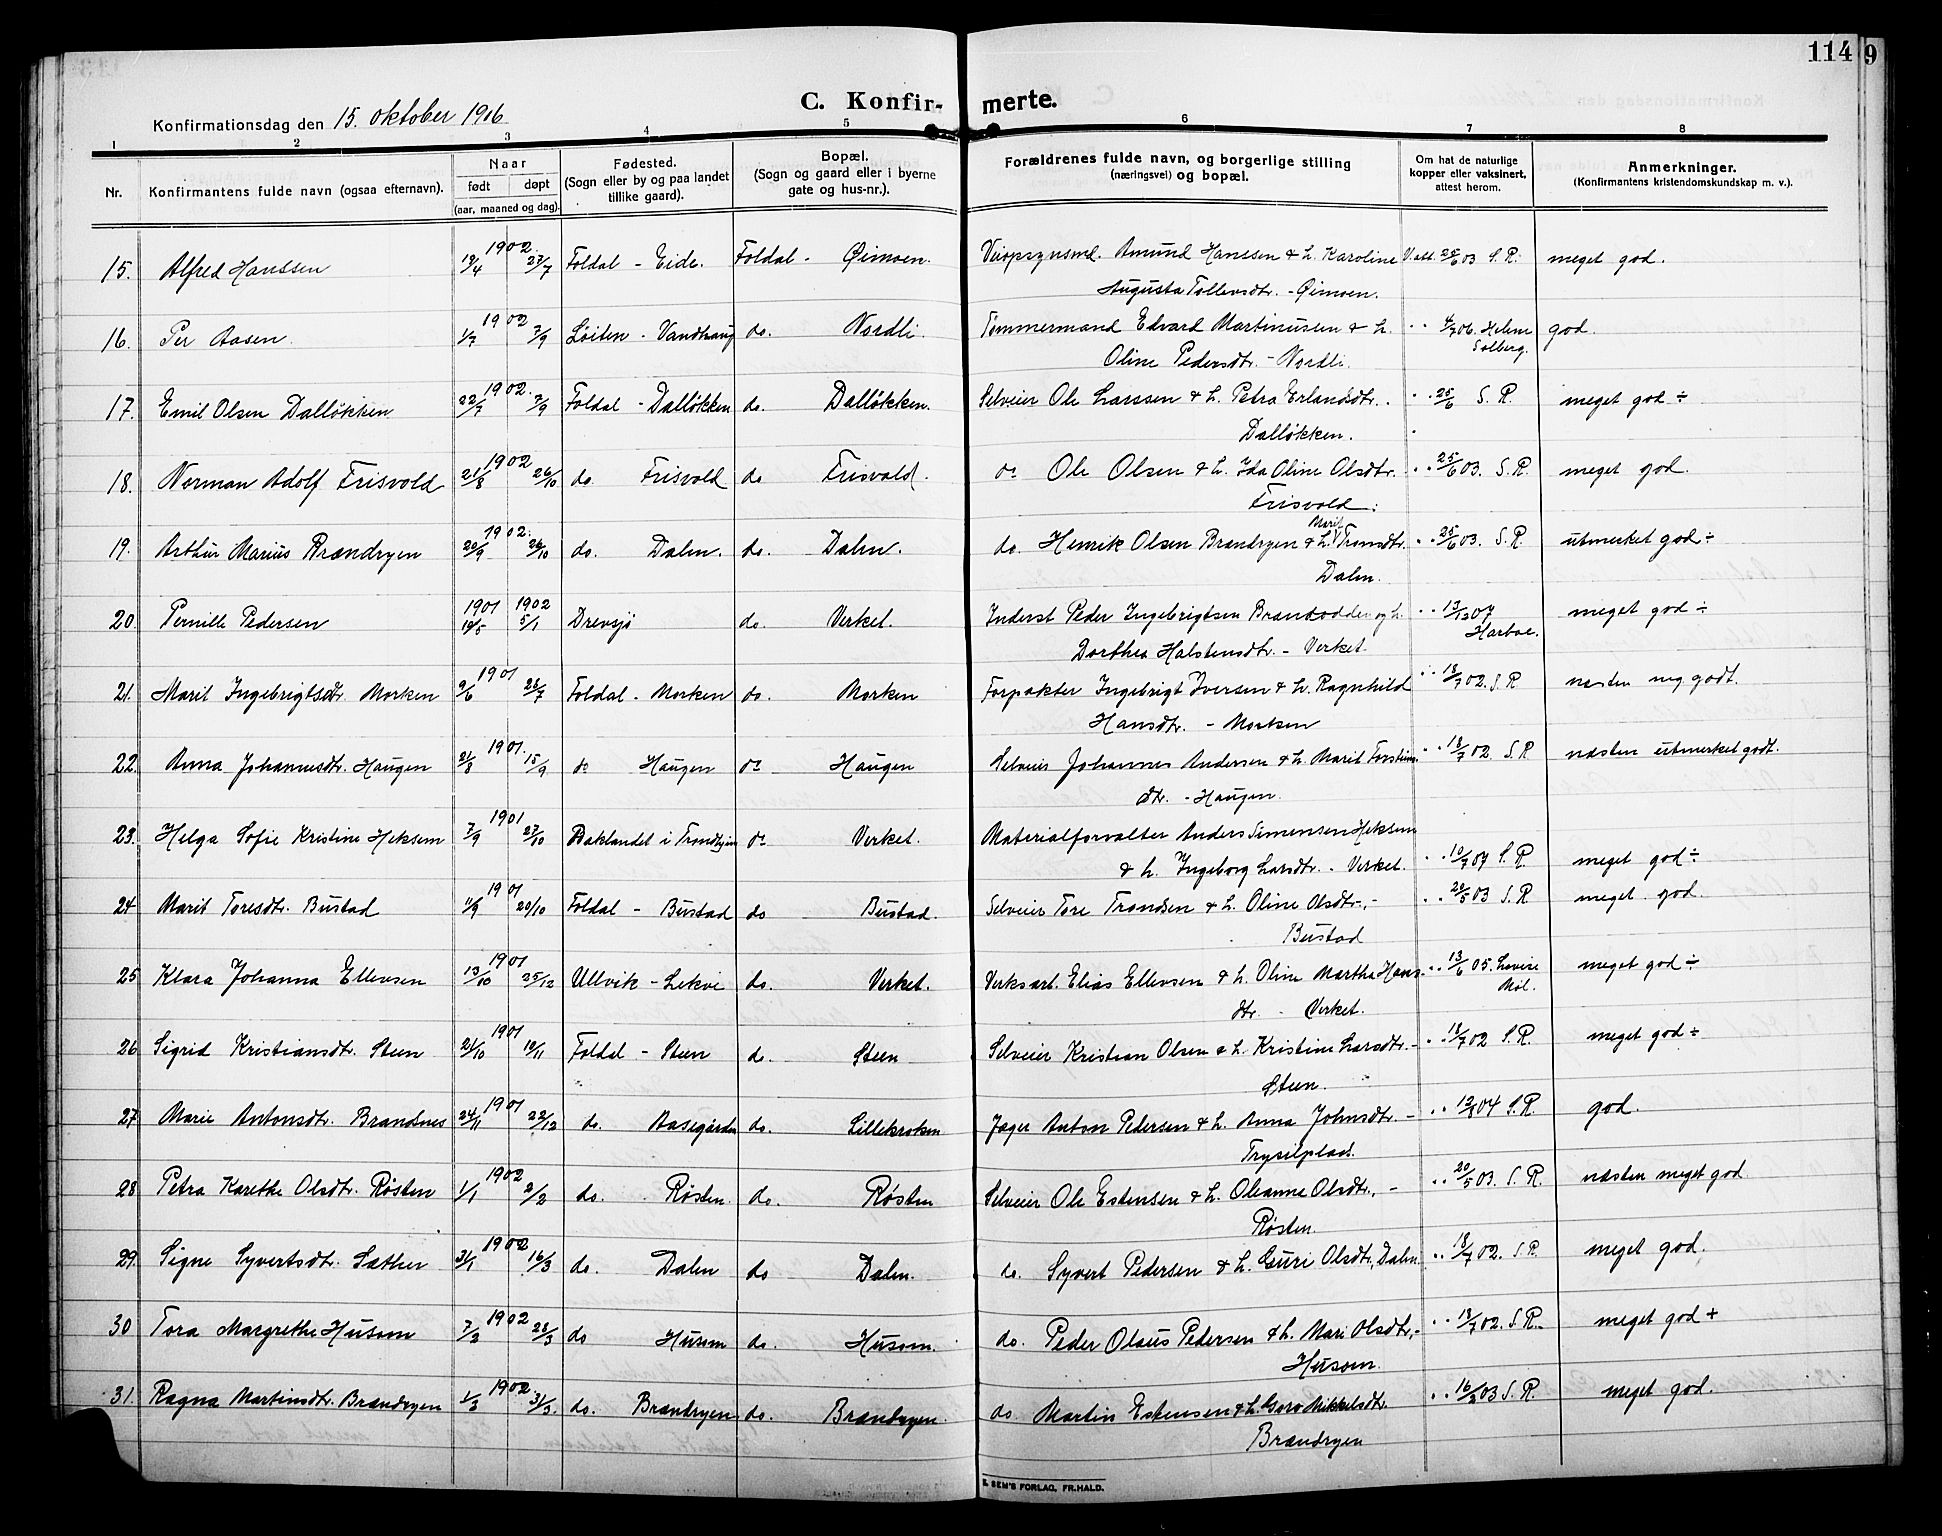 114 9
C. Konfir- merte.
Konfirmationsdag den 15. oktober 1916
1 2 3 4 5 6 7 8
Nr. Konfirmantens fulde navn (ogsaa efternavn). Naar født døpt (aar, maaned og dag). Fødested. (Sogn eller by og paa landet tillike gaard). Bopæl. (Sogn og gaard eller i byerne gate og hus-nr.). Forældrenes fulde navn, og borgerlige stilling (næringsvei) og bopæl. Om hat de naturlige kopper eller vaksinert, attest herom. Anmerkninger. (Konfirmantens kristendomskundskap m. v.).
15. Alfred Hanssen 1902 27/7 Foldal - Eide. Foldal - Øimoen. Veiopsynsmd. Amund Hanssen & h. Karoline V. att. 25/6 03 S. R. meget god.
Augusta Tollevsdtr. - Øimoen.
16. Per Aasen. 1/7 1902 7/9 Løiten - Vandhaug do. Nordli. Tømmermand Edvard Martinussen & h. " 4/7 06. Helene Solberg. god.
Oline Pedersdtr. - Nordli.
17. Emil Olsen Dalløkken 22/7 1902 7/9 Foldal - Dalløkken do. Dalløkken. Selveier Ole Larssen & h. Petra Erlandsdtr. " 25/6 S. R. meget god ÷
Dalløkken.
18. Norman Adolf Frisvold 21/8 1902 26/10 do. Frisvold do Frisvold. do Ole Olsen & h. Ida Oline Olsdtr. " 25/6 03. S. R. meget god.
Frisvold.
19. Arthur Marius Brændryen 20/9 1902. 26/10 do. Dalen. do. Dalen. do. Henrik Olsen Brændryen & h. Marit Tronsdtr. " 25/6 03. S. R. utmerket god ÷
Dalen.
20 Pernille Pedersen 1901 1902 5/1 Drevsjø do. Verket. Inderst Peder Ingebrigtsen Brændodden og h. " 13/12 07 Harboe. meget god ÷
Dorthea Halstensdtr. - Verket.
21. Marit Ingebrigtsdtr. Morken 9/6 1901 28/7 Foldal - Morken do. Morken Forpakter Ingebrigt Iversen & h. Ragnhild " 18/7 02. S. R næsten meg. godt.
Hansdtr. - Morken
22. Anna Johannesdtr. Haugen 21/8 1901. 15/9 do Haugen do Haugen Selveier Johannes Andersen & h. Marit Torsteins- " 18/7 02. S. R næsten utmerket godt.
dtr. - Haugen.
23. Helga Sofie Kristine Heksem 7/9 1901 27/10 Baklandet i Trondhjem do Verket. Materialforvalter Anders Simensen Heksem
& h. Ingeborg Larsdtr. - Verket. " 10/7 07 S. R. meget god ÷
24 Marit Toresdtr. Bustad 11/9 1901 20/10 Foldal - Bustad do Bustad. Selveier Tore Trondsen & h. Oline Olsdtr. - " 28/5 03 S. R meget god.
Bustad
25 Klara Johanna Ellevsen 13/10 1901 25/12 Ullvik - Lekve do. Verket. Verksarb. Elias Ellevsen & h. Oline Martha Hans- " 13/6 05. Lovise Mol. meget god ÷
dtr. - Verket.
26 Sigrid Kristiansdtr. Steen 24/10 1901 10/11 Foldal - Steen do. Steen Selveier Kristian Olsen & h. Kristine Larsdtr. - " 18/7 02 S. R. meget god ÷
Steen.
27 Marie Antonsdtr. Brandnes 24/11 1901 22/12 do. Aasegården do. Lillekroken Jæger Anton Pedersen & h. Anna Johnsdtr. - 04 S. R. god.
Trysilplads.
28 Petra Karethe Olsdtr. Røsten 1/1 1902 2/2 do. Røsten. do. Røsten Selveier Ole Estensen & h. Oleanna Olsdtr. - " 20/5 03. S. R. næsten meget god
Røsten.
29. Signe Syvertsdtr. Sæther 31/1 1902 16/3 do. Dalen do Dalen. do. Syvert Pedersen & h. Guri Olsdtr., Dalen " 18/7 02. S. R. meget god.
30 Tora Margrethe Husom 7/2 1902 28/3 do Husom do. Husom. do. Peder Olaus Pedersen & h. Mari Olsdtr. - " 18/7 02. S. R. meget god +
Husom.
31. Ragna Martinsdtr. Brændryen 1/3 1902. 31/3. do. Brændryen do. Brændryen. do Martin Estensen & h. Goro Mikkelsdtr. " 16/2 03 S. R. meget god.
Brændryen
E. SEM'S FORLAG, FR.HALD.